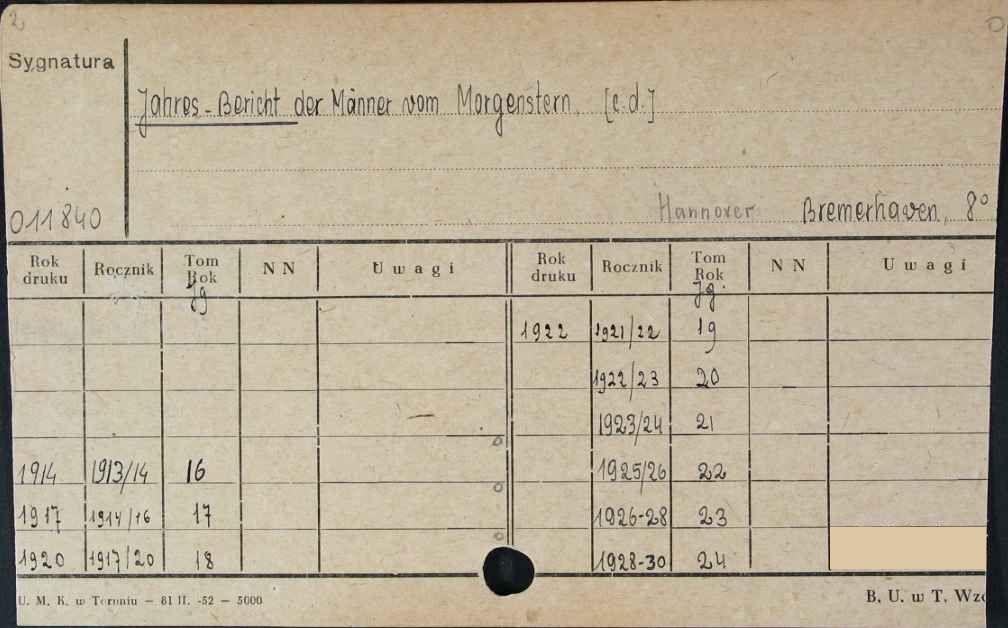 2
Sygnatura
Jahres-Bericht der Männer vom Morgenstern. [c.d.]
011840
Hannover. Bremerhaven, 8°
Rok druku Rocznik Tom Rok Jg NN Uwagi Rok druku Rocznik Tom Rok Jg. NN Uwagi
1922 1921/22 19
1922/23 20
1923/24 21
1914 1913/14 16 1925/26 22
1917 1914/16 17 1926-28 23
1920 1917/20 18 1928-30 24
U. M. K. w Toruniu — 81 II. -52 — 5000
B. U. w T. Wzó